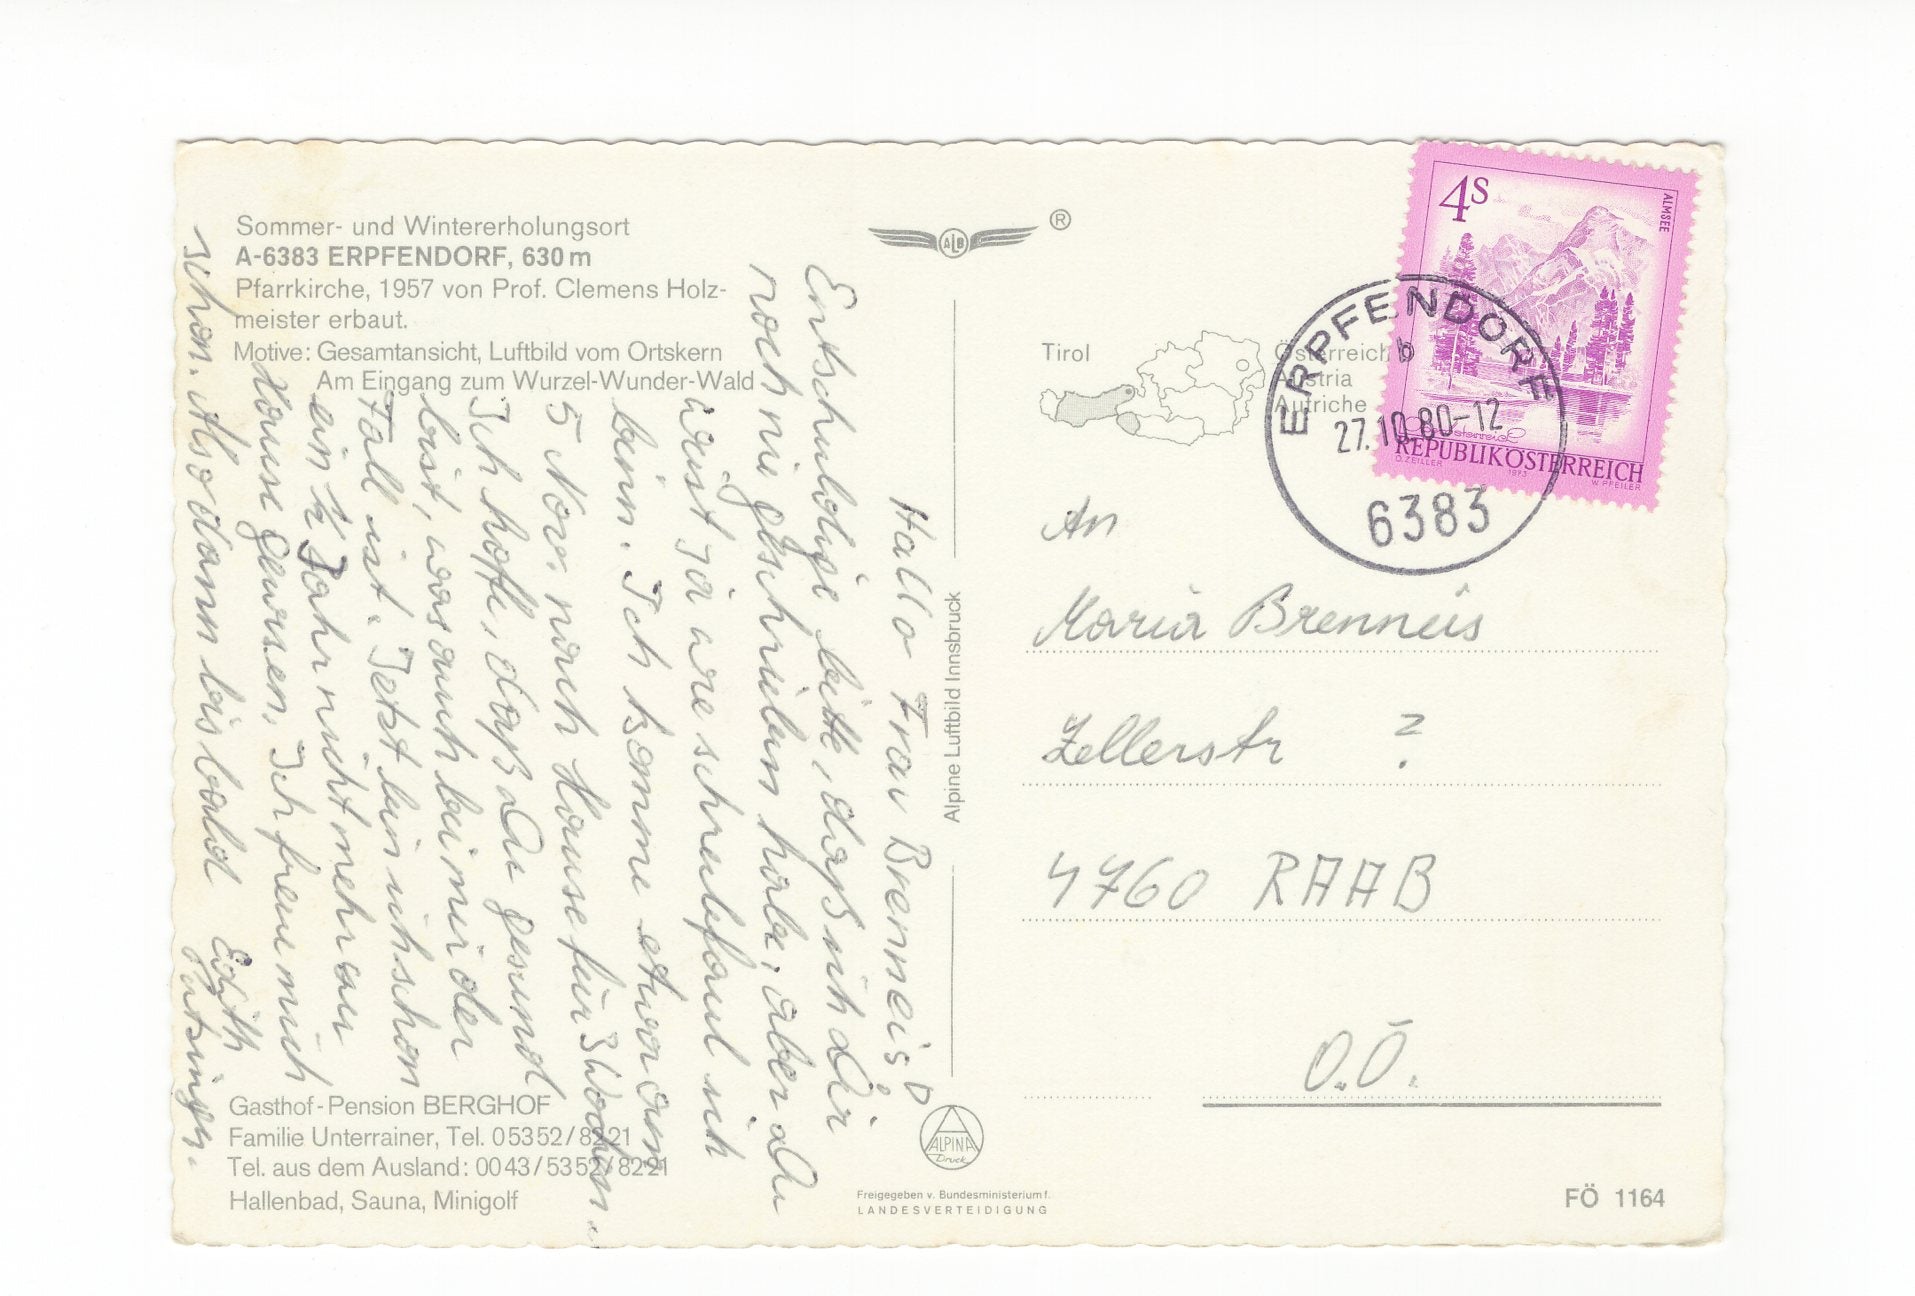 Sommer- und Wintererholungsort
A-6383 ERPFENDORF, 630 m
Pfarrkirche, 1957 von Prof. Clemens Holz-
meister erbaut.
Motive: Gesamtansicht, Luftbild vom Ortskern
Am Eingang zum Wurzel-Wunder-Wald
Hallo Frau Brenneis!
Entschuldige bitte, daß ich dir
noch nie geschrieben habe, aber du
weist ja wie schreibfaul ich
bin. Ich komme etwa am
5 Nov. nach Hause für 3 Wochen.
Ich hoffe, daß du gesund
bist, was auch bei mir der
Fall ist. Jetzt bin ich schon
ein 1/2 Jahr nicht mehr zu
Hause gewesen. Ich freu mich
schon. Also dann bis bald
Edith
Gasthof-Pension BERGHOF
Familie Unterrainer, Tel. 05352/8221
Tel. aus dem Ausland: 0043/5352/8221
Hallenbad, Sauna, Minigolf
ALB
®
Alpine Luftbild Innsbruck
ALPINA
Druck
Freigegeben v. Bundesministerium f.
LANDESVERTEIDIGUNG
Tirol
Österreich
Austria
Autriche
4S
ALMSEE
REPUBLIK ÖSTERREICH
O. ZEILLER
1973
W. PFEILER
ERPFENDORF
b
27.10.80-12
6383
An
Maria Brenneis
Zellerstr ?
4760 RAAB
O.Ö.
FÖ 1164